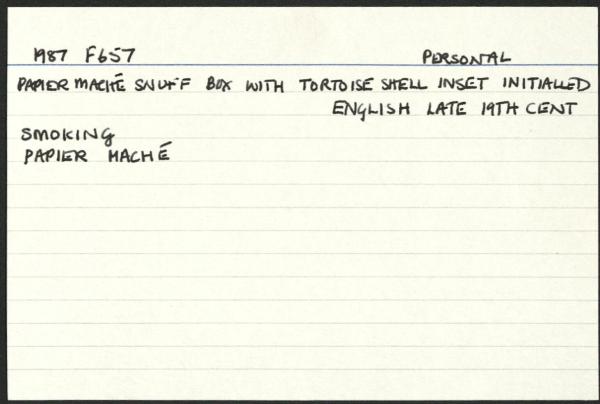 1987 F657 PERSONAL
PAPIER MACHÉ SNUFF BOX WITH TORTOISE SHELL INSET INITIALLED
ENGLISH LATE 19TH CENT
SMOKING
PAPIER MACHÉ